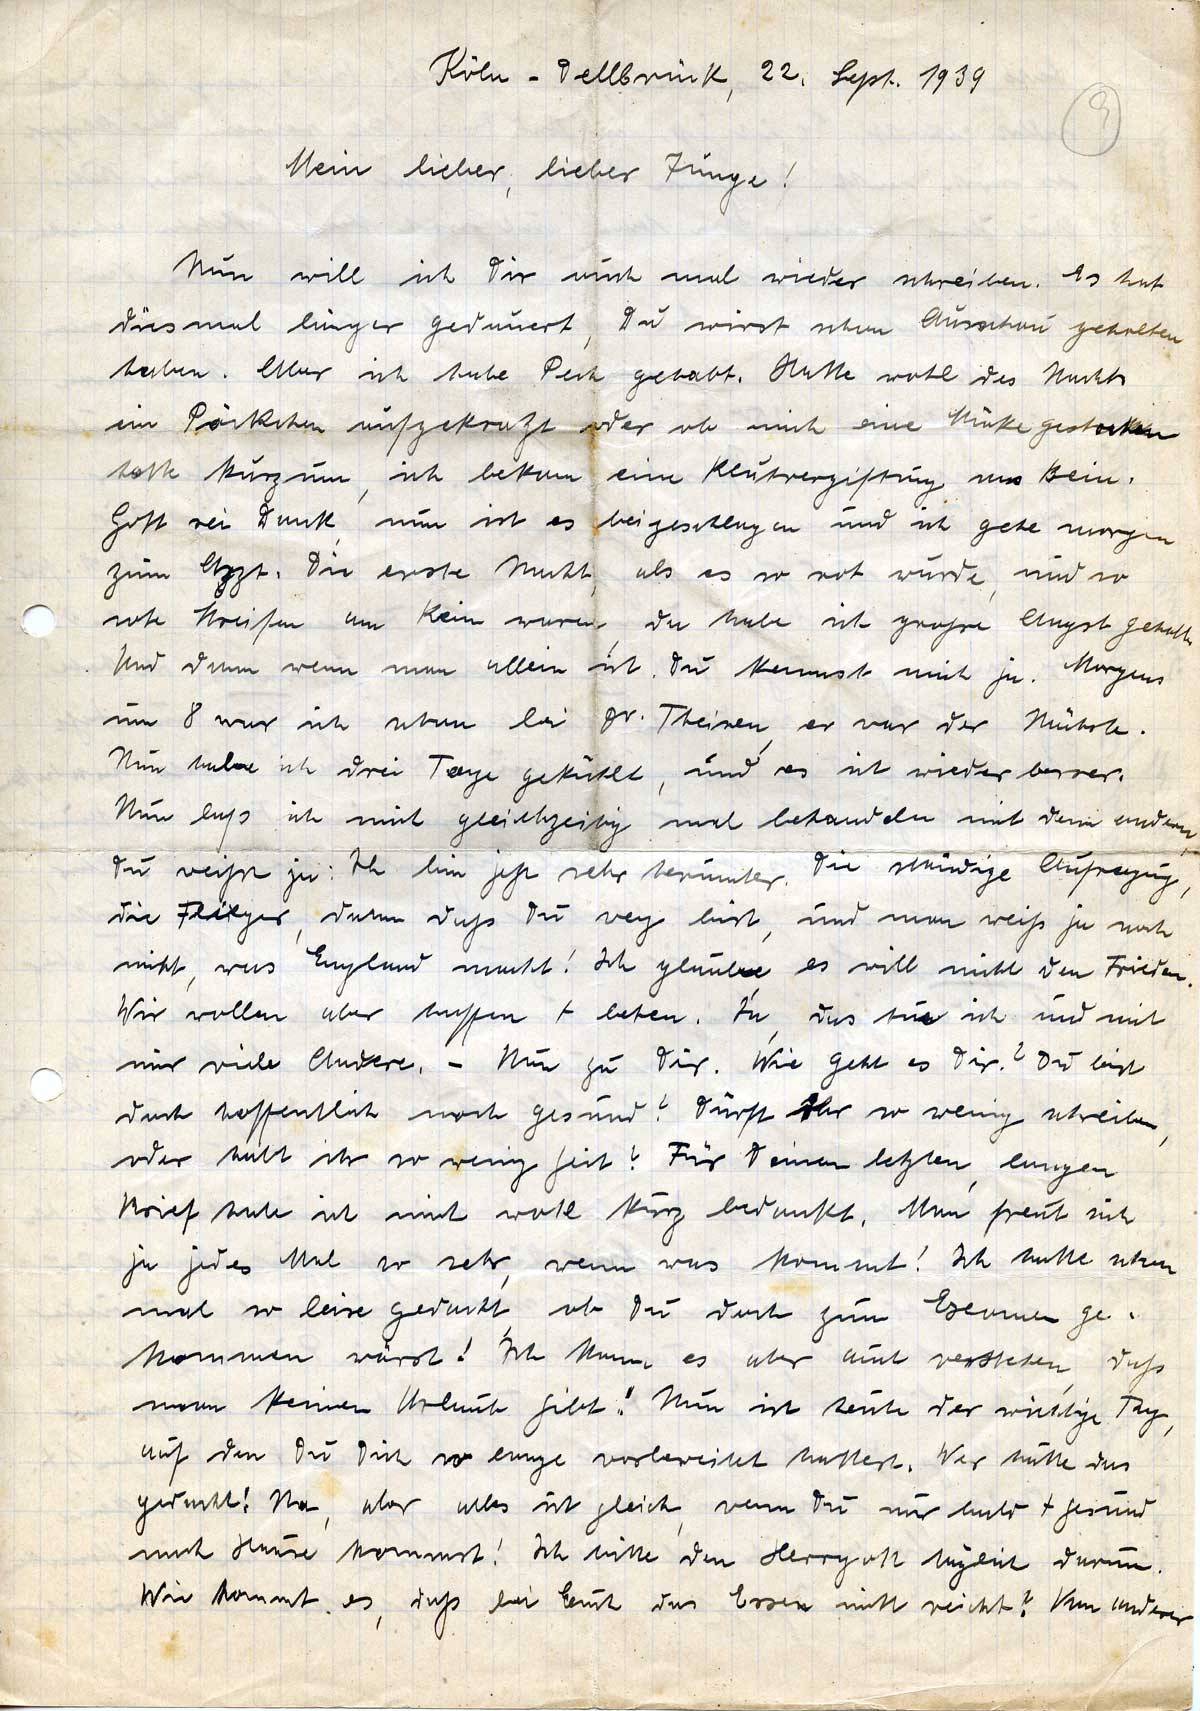 Köln - Dellbrück, 22. Sept. 1939
9
Mein lieber, lieber Junge!
Nun will ich Dir auch mal wieder schreiben. Es hat
diesmal länger gedauert, Du wirst schon Ausschau gehalten
haben. Aber ich habe Pech gehabt. Hatte wohl des Nachts
ein Pöckchen aufgekratzt oder ob mich eine Mücke gestochen
hatte kurzum, ich bekam eine Blutvergiftung ans Bein.
Gott sei Dank, nun ist es beigeschlagen und ich gehe morgen
zum Arzt. Die erste Nacht, als es so rot wurde, und so
rote Streifen am Bein waren, da habe ich große Angst gehabt.
Und dann wenn man allein ist. Du kennst mich ja. Morgens
um 8 war ich schon bei Dr. Theisen, er war der Nächste.
Nun habe ich drei Tage gekühlt, und es ist wieder besser.
Nun lass ich mich gleichzeitig mal behandeln mit dem andern,
Du weißt ja: Ich bin jetzt sehr herunter. Die ständige Aufregung,
die Flieger, dann daß Du weg bist, und man weiß ja noch
nicht, was England macht! Ich glaube, es will nicht den Frieden.
Wir wollen aber hoffen + beten. Ja, das tue ich und mit
mir viele Andere. - Nun zu Dir. Wie geht es Dir? Du bist
doch hoffentlich noch gesund? Dürft Ihr so wenig schreiben,
oder habt ihr so wenig Zeit? Für Deinen letzten, langen
Brief habe ich mich wohl kurz bedankt. Man freut sich
ja jedes Mal so sehr, wenn was kommt! Ich hatte schon
mal so leise gedacht, ob Du doch zum Examen ge-
kommen wärst! Ich kann es aber auch verstehen, daß
man keinen Urlaub gibt! Nun ist heute der wichtige Tag,
auf den Du Dich so lange vorbereitet hattest. Wer hätte das
gedacht! Na, aber alles ist gleich, wenn Du nur bald + gesund
nach Hause kommst! Ich bitte den Herrgott täglich darum.
Wie kommt es, daß bei Euch das Essen nicht reicht? Von anderer